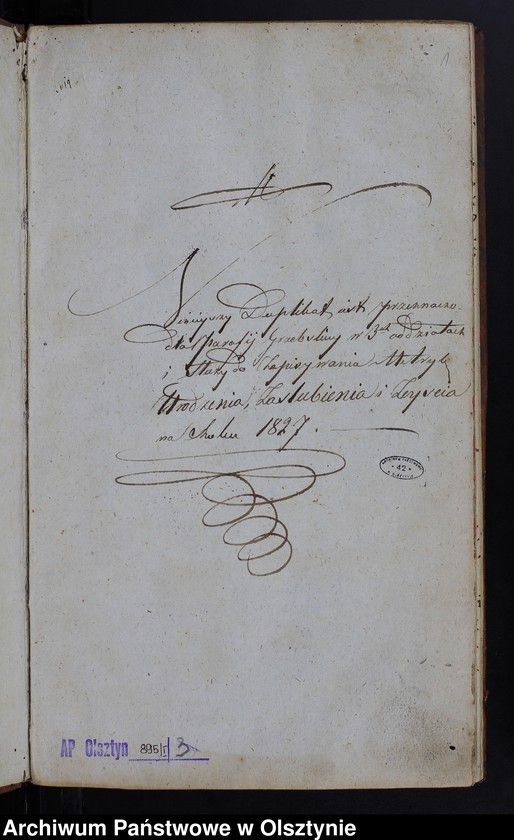 1
A
Niniejszy Duplikat jest przeznaczo
dla Parafij Grzebskiey w 3ch oddziałach
i służy do Zapisywania Metryk
Urodzenia, Zaślubienia i Zeyscia
na Roku 1827.
42
AP Olsztyn 895/I/3
Archiwum Państwowe w Olsztynie